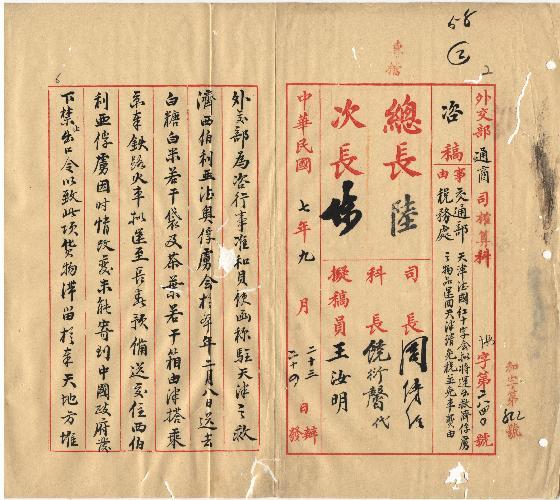 58
2
外交部通商司榷算科
咨稿
事由
交通部
稅務處
天津法國紅十字會擬將運出救濟俘虜
之物品運回天津請免稅並免車費由
字第二八四〇號
和字第
號
總長 陸
次長
司長 周傳經
科長 饒衍馨代
擬稿員 王汝明
中華民國七年九月
二十三
二十四
日
辦
發
外交部為咨行事准和貝使函稱駐天津之救
濟西伯利亞德奧俘虜會於本年二月八日送去
白糖白米若干袋及茶葉若干箱由津搭乘
京奉鐵路火車擬運至長春預備送交住西伯
利亞俘虜因時情改變未能寄到中國政府發
下禁止出口令以致此項貨物滯留於奉天地方堆